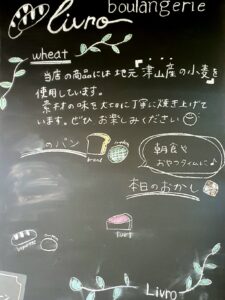 boulangerie
livro
wheat
当店の商品には地元「津山産の小麦」を
使用しています。
素材の味を大切に丁寧に焼き上げて
います。ぜひ お楽しみください
のパン
bread
朝食や
おやつタイムに♪
本日のおかし
tart
Livro